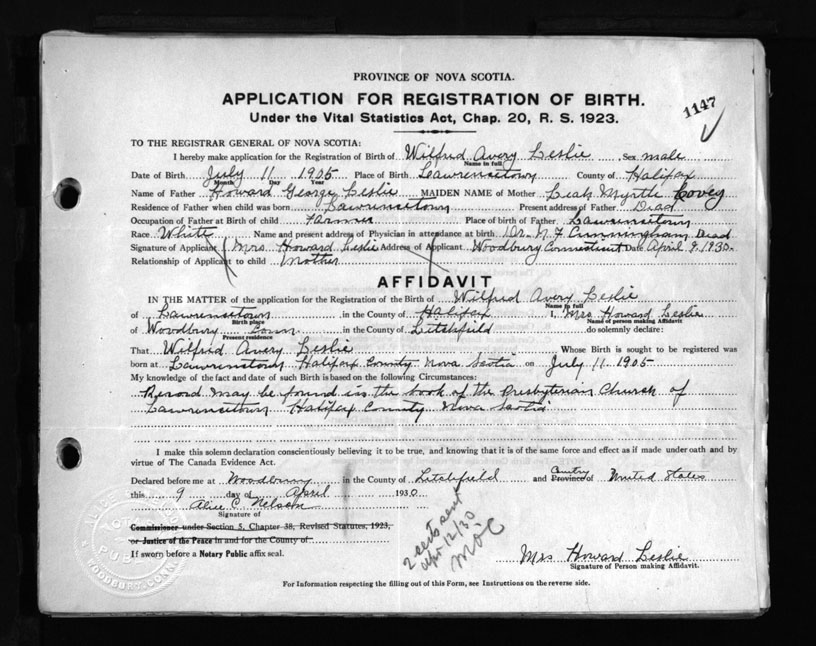 PROVINCE OF NOVA SCOTIA.
APPLICATION FOR REGISTRATION OF BIRTH.
1147
Under the Vital Statistics Act, Chap. 20, R. S. 1923.
TO THE REGISTRAR GENERAL OF NOVA SCOTIA:
I hereby make application for the Registration of Birth of Wilfrid Avery Leslie Sex male
Name in full
Date of Birth July 11 1905 Place of Birth Lawrencetown County of Halifax
Month Day Year
Name of Father Howard George Leslie MAIDEN NAME of Mother Leah Myrtle Covey
Residence of Father when child was born Lawrencetown Present address of Father Dead
Occupation of Father at Birth of child Farmer Place of birth of Father Lawrencetown
Race White Name and present address of Physician in attendance at birth Dr. N. F. Cunningham Dead
Signature of Applicant Mrs Howard Leslie Address of Applicant Woodbury Connecticut Date April 9, 1930.
Relationship of Applicant to child Mother
AFFIDAVIT
IN THE MATTER of the application for the Registration of the Birth of Wilfrid Avery Leslie
Name in full
of Lawrencetown in the County of Halifax I, Mrs Howard Leslie
Birth place Name of person making Affidavit
of Woodbury Conn in the County of Litchfield do solemnly declare:
Present residence
That Wilfrid Avery Leslie Whose Birth is sought to be registered was
born at Lawrencetown Halifax County Nova Scotia on July 11 1905
My knowledge of the fact and date of such Birth is based on the following Circumstances:
Record may be found in the book of the Presbyterian Church of
Lawrencetown Halifax County Nova Scotia
I make this solemn declaration conscientiously believing it to be true, and knowing that it is of the same force and effect as if made under oath and by
virtue of The Canada Evidence Act.
Declared before me at Woodbury in the County of Litchfield and Province of Country United States
this 9 day of April 1930
Alice C. Nelson
Signature of
Commissioner under Section 5, Chapter 38, Revised Statutes, 1923,
or Justice of the Peace in and for the County of
If sworn before a Notary Public affix seal.
2 certs sent
Apr 12/30
Mrs Howard Leslie
Signature of Person making Affidavit.
For Information respecting the filling out of this Form, see Instructions on the reverse side.